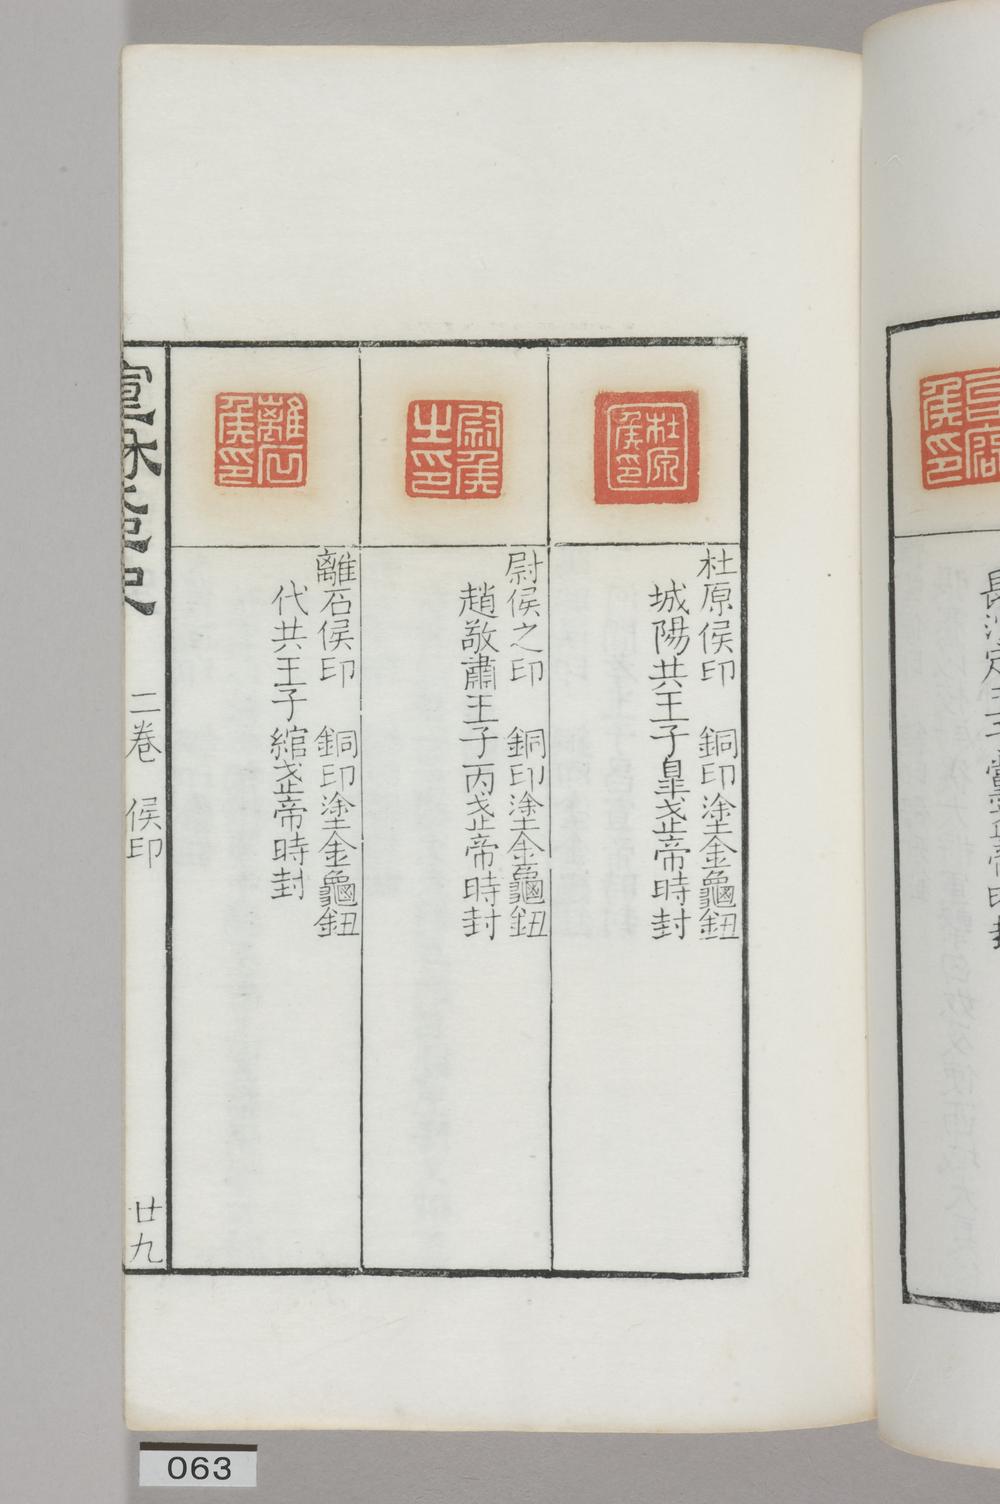 杜原侯印
杜原侯印　銅印塗金龜鈕
城陽共王子皐武帝時封
尉侯之印
尉侯之印　銅印塗金龜鈕
趙敬肅王子丙武帝時封
離石侯印
離石侯印　銅印塗金龜鈕
代共王子綰武帝時封
宣和印史　二卷　侯印　廿九
063